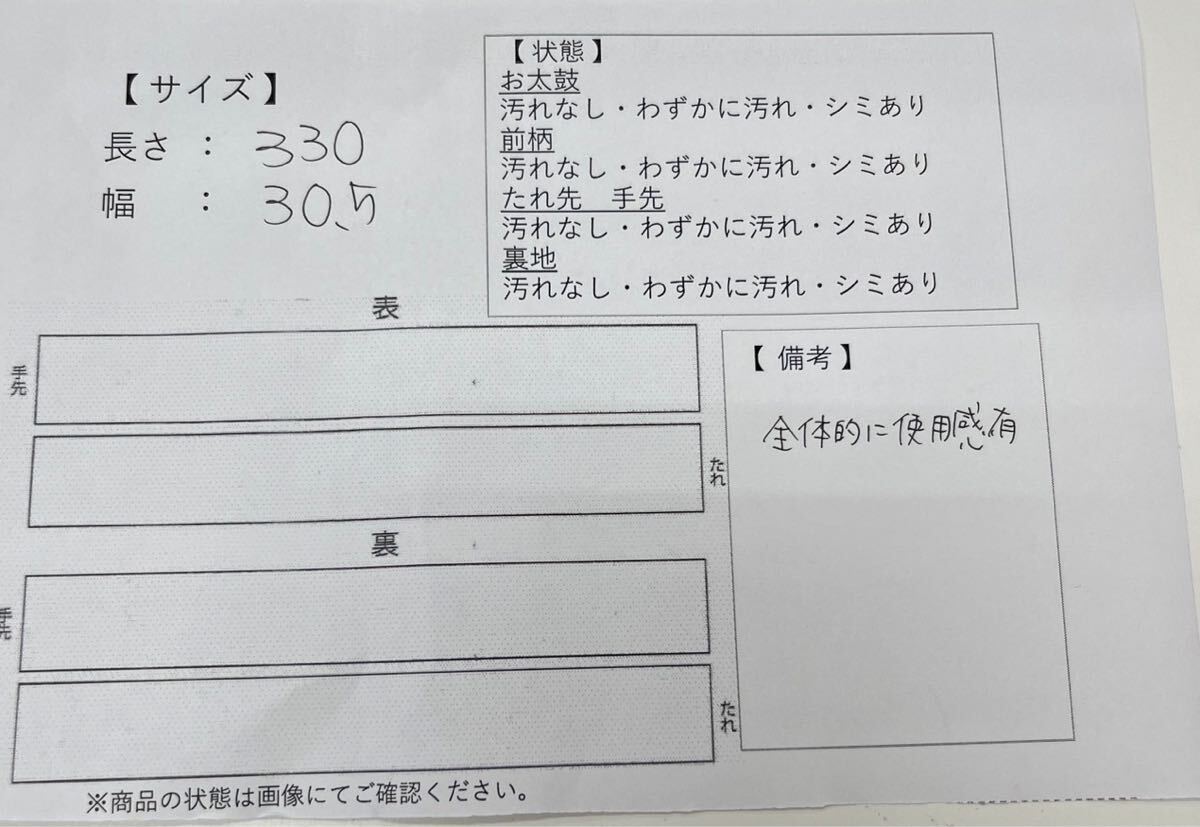 【 サイズ 】
長さ ： 330
幅 ： 30.5
【 状態 】
お太鼓
汚れなし・わずかに汚れ・シミあり
前柄
汚れなし・わずかに汚れ・シミあり
たれ先　手先
汚れなし・わずかに汚れ・シミあり
裏地
汚れなし・わずかに汚れ・シミあり
表
手先
たれ
裏
手先
たれ
【 備考 】
全体的に使用感有
※商品の状態は画像にてご確認ください。